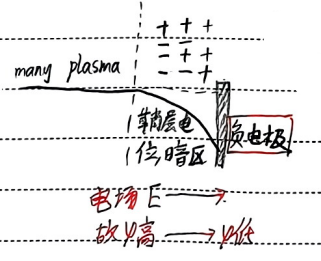 + + +
− = +
many plasma − + +
− − +
鞘层电 负电极
位,暗区
电场E ⟶
故φ高 ⟶ φ低